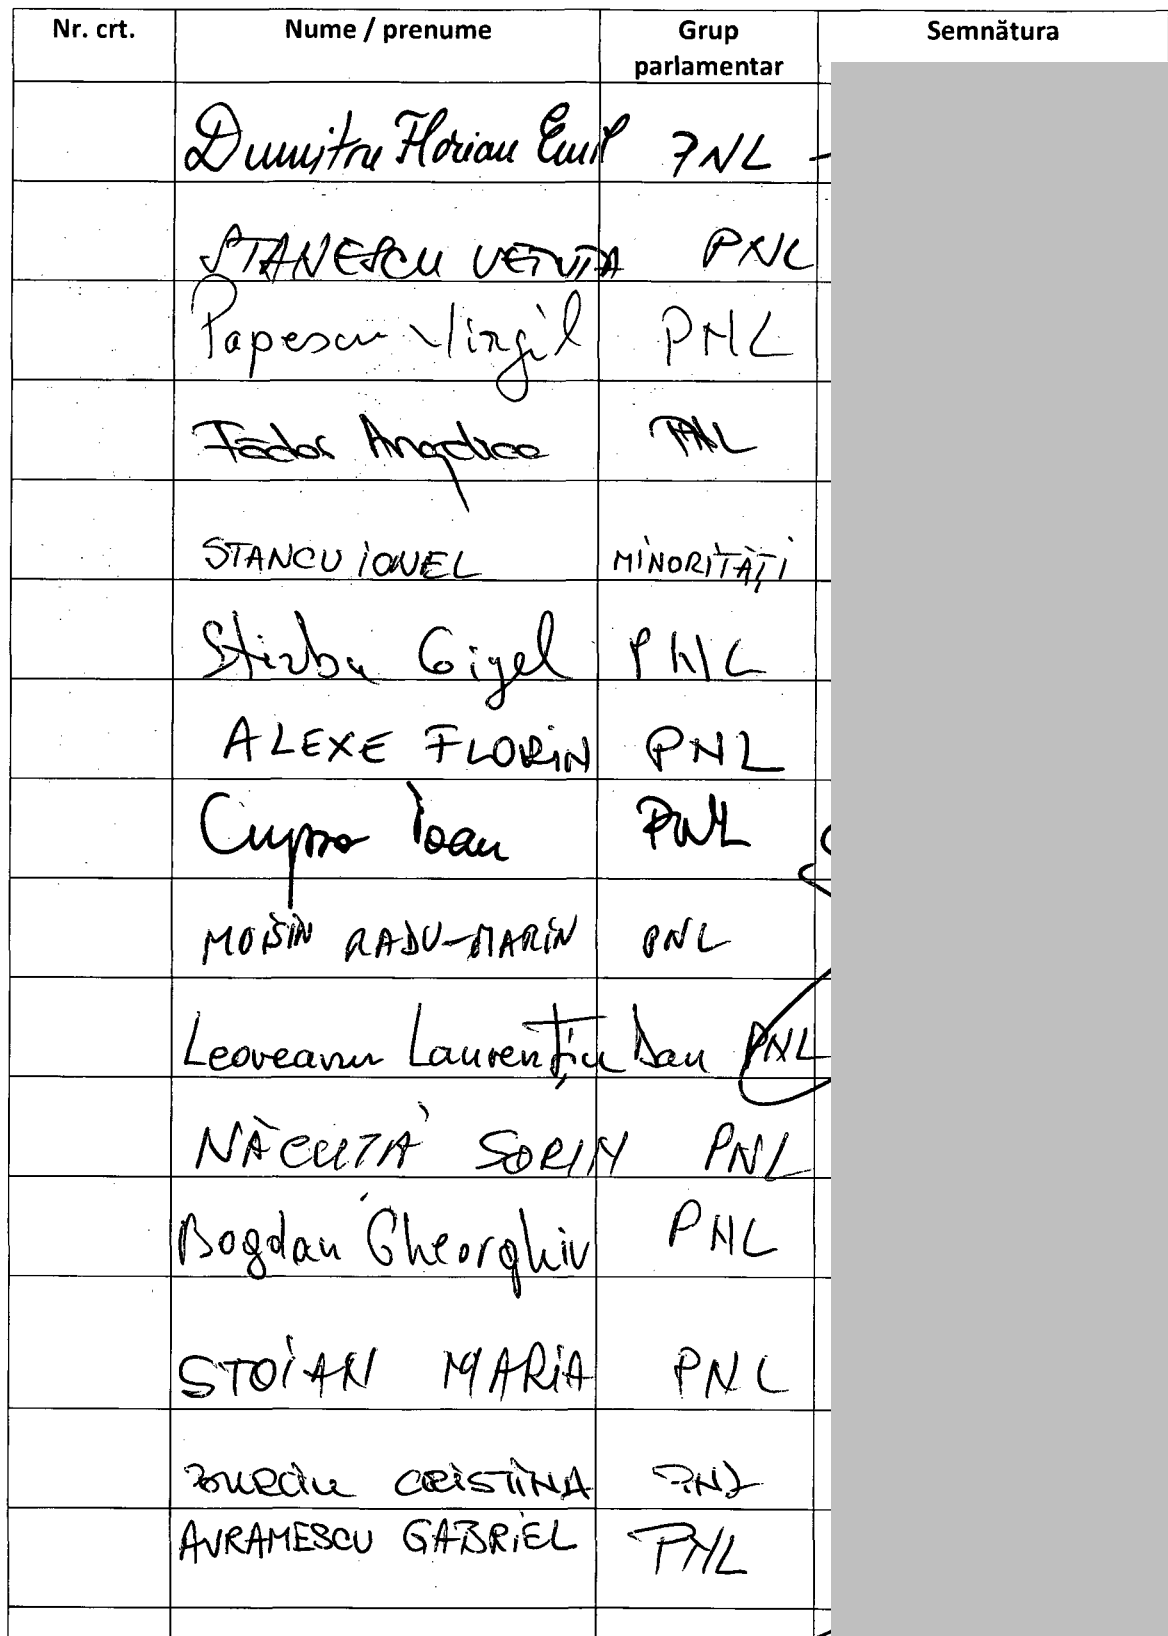 Nr. crt. Nume / prenume Grup parlamentar Semnătura
Dumitru Florian Emil PNL
STANESCU VETUTA PNL
Popescu Virgil PNL
Fădor Angelica PNL
STANCU IONEL MINORITĂȚI
Știrbu Gigel PNL
ALEXE FLORIN PNL
Cupșa Ioan PNL
MOISIN RADU-MARIN PNL
Leoreanu Laurențiu Dan PNL
NĂCUTĂ SORIN PNL
Bogdan Gheorghiu PNL
STOIAN MARIA PNL
BURCIU CRISTINA PNL
AVRAMESCU GABRIEL PNL